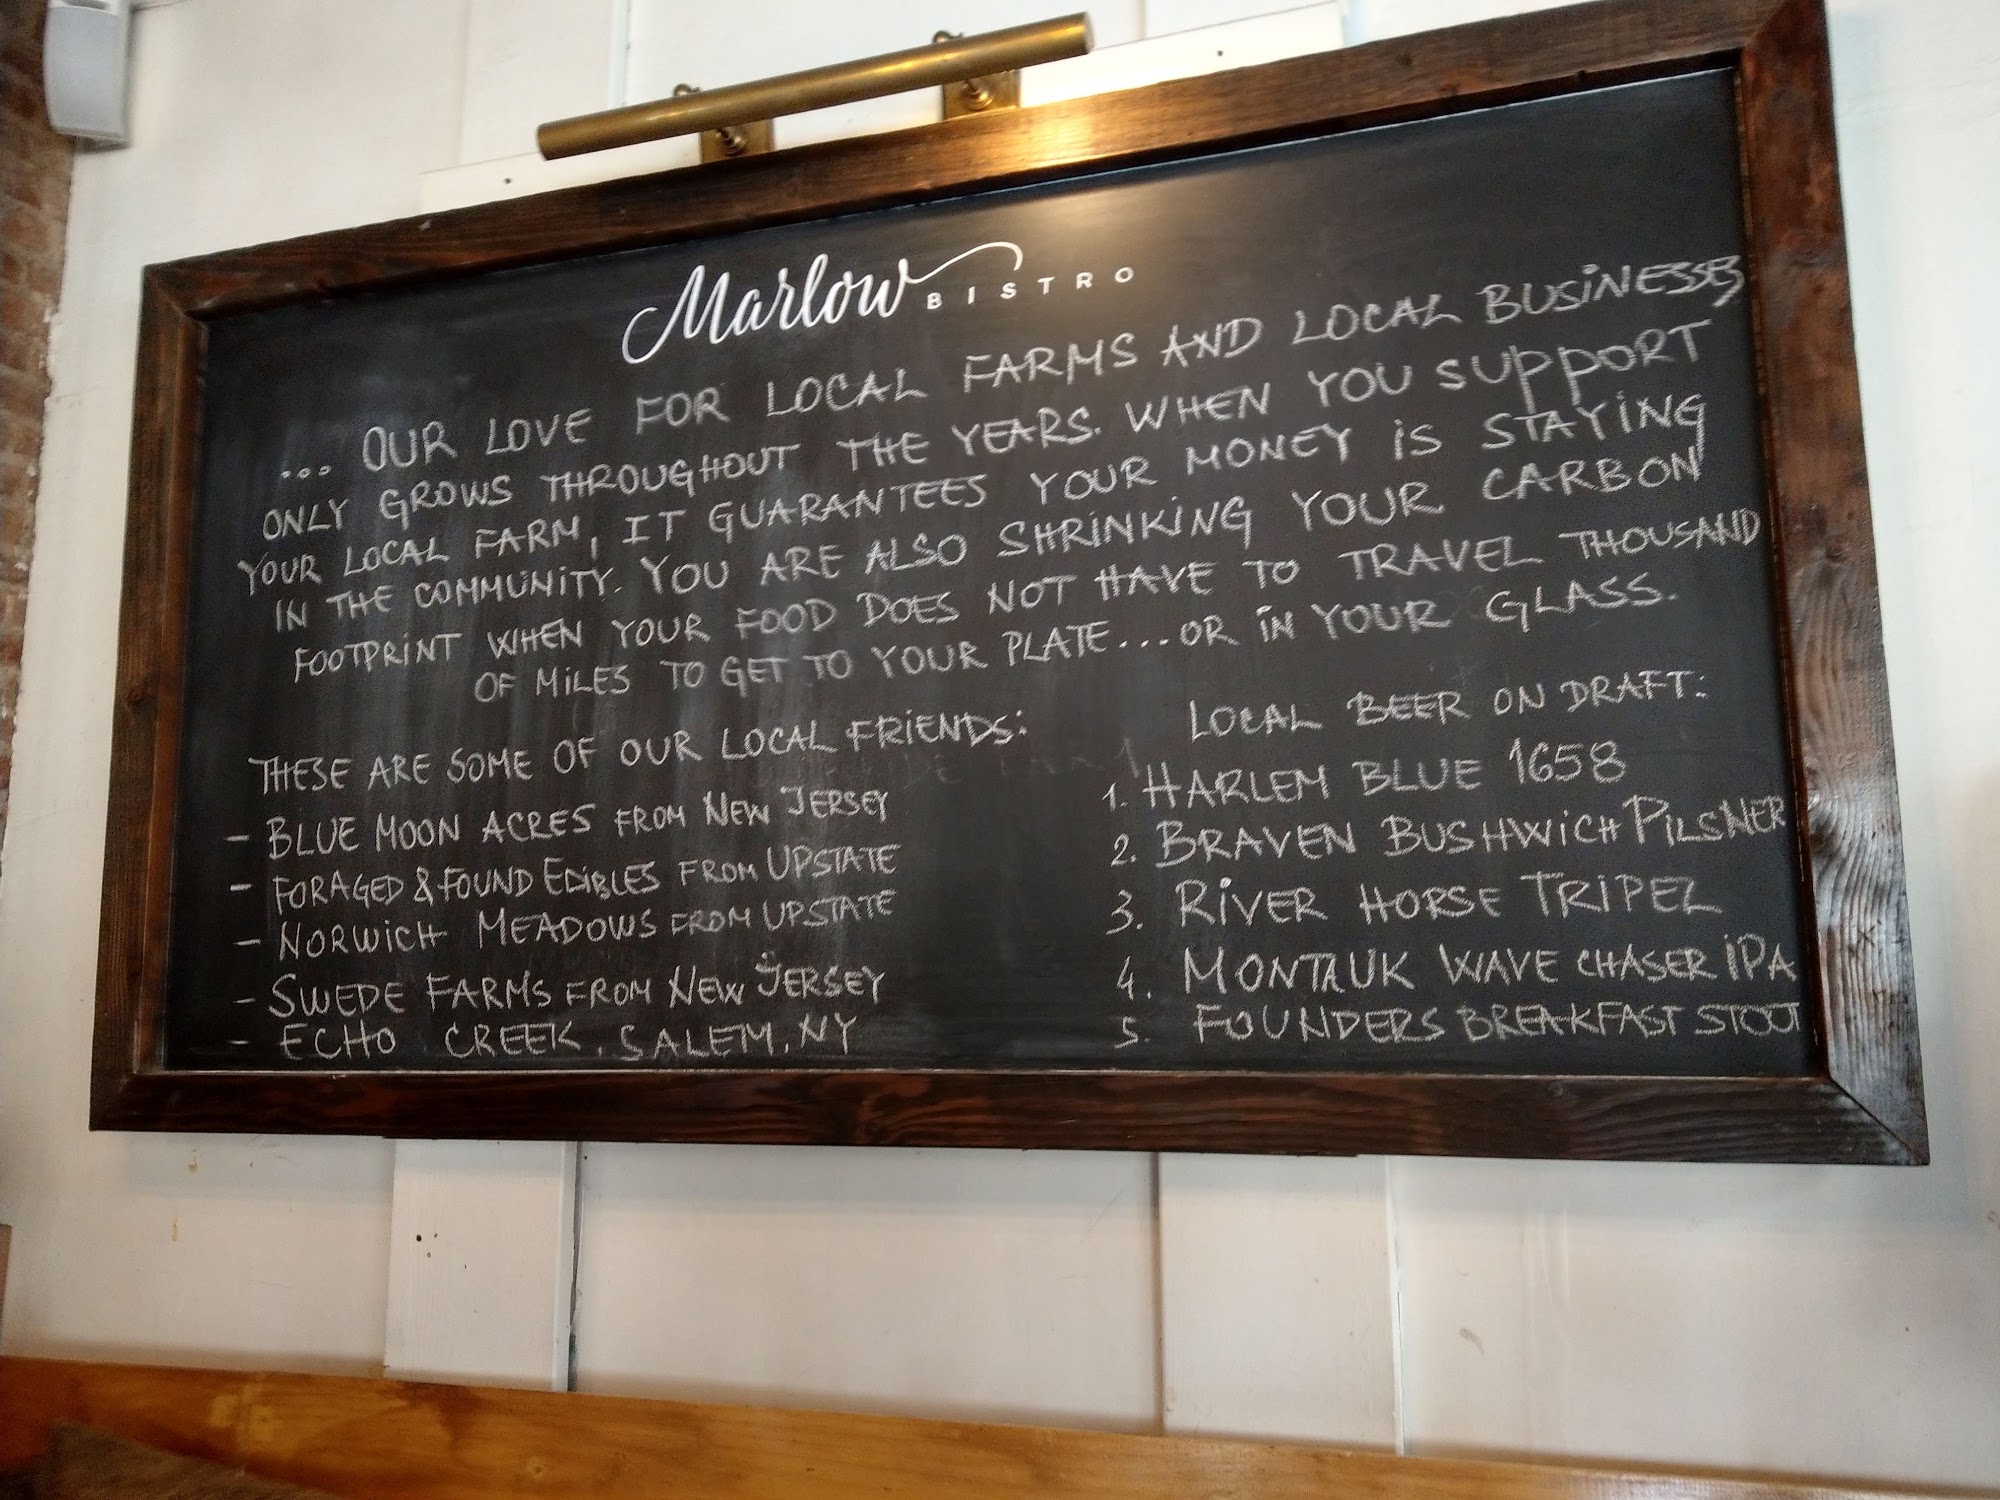 Marlow BISTRO
... OUR LOVE FOR LOCAL FARMS AND LOCAL BUSINESSES
ONLY GROWS THROUGHOUT THE YEARS. WHEN YOU SUPPORT
YOUR LOCAL FARM, IT GUARANTEES YOUR MONEY IS STAYING
IN THE COMMUNITY. YOU ARE ALSO SHRINKING YOUR CARBON
FOOTPRINT WHEN YOUR FOOD DOES NOT HAVE TO TRAVEL THOUSAND
OF MILES TO GET TO YOUR PLATE...OR IN YOUR GLASS.
THESE ARE SOME OF OUR LOCAL FRIENDS:
- BLUE MOON ACRES FROM NEW JERSEY
- FORAGED & FOUND EDIBLES FROM UPSTATE
- NORWICH MEADOWS FROM UPSTATE
- SWEDE FARMS FROM NEW JERSEY
- ECHO CREEK, SALEM, NY
LOCAL BEER ON DRAFT:
1. HARLEM BLUE 1658
2. BRAVEN BUSHWICH PILSNER
3. RIVER HORSE TRIPEL
4. MONTAUK WAVE CHASER IPA
5. FOUNDERS BREAKFAST STOUT